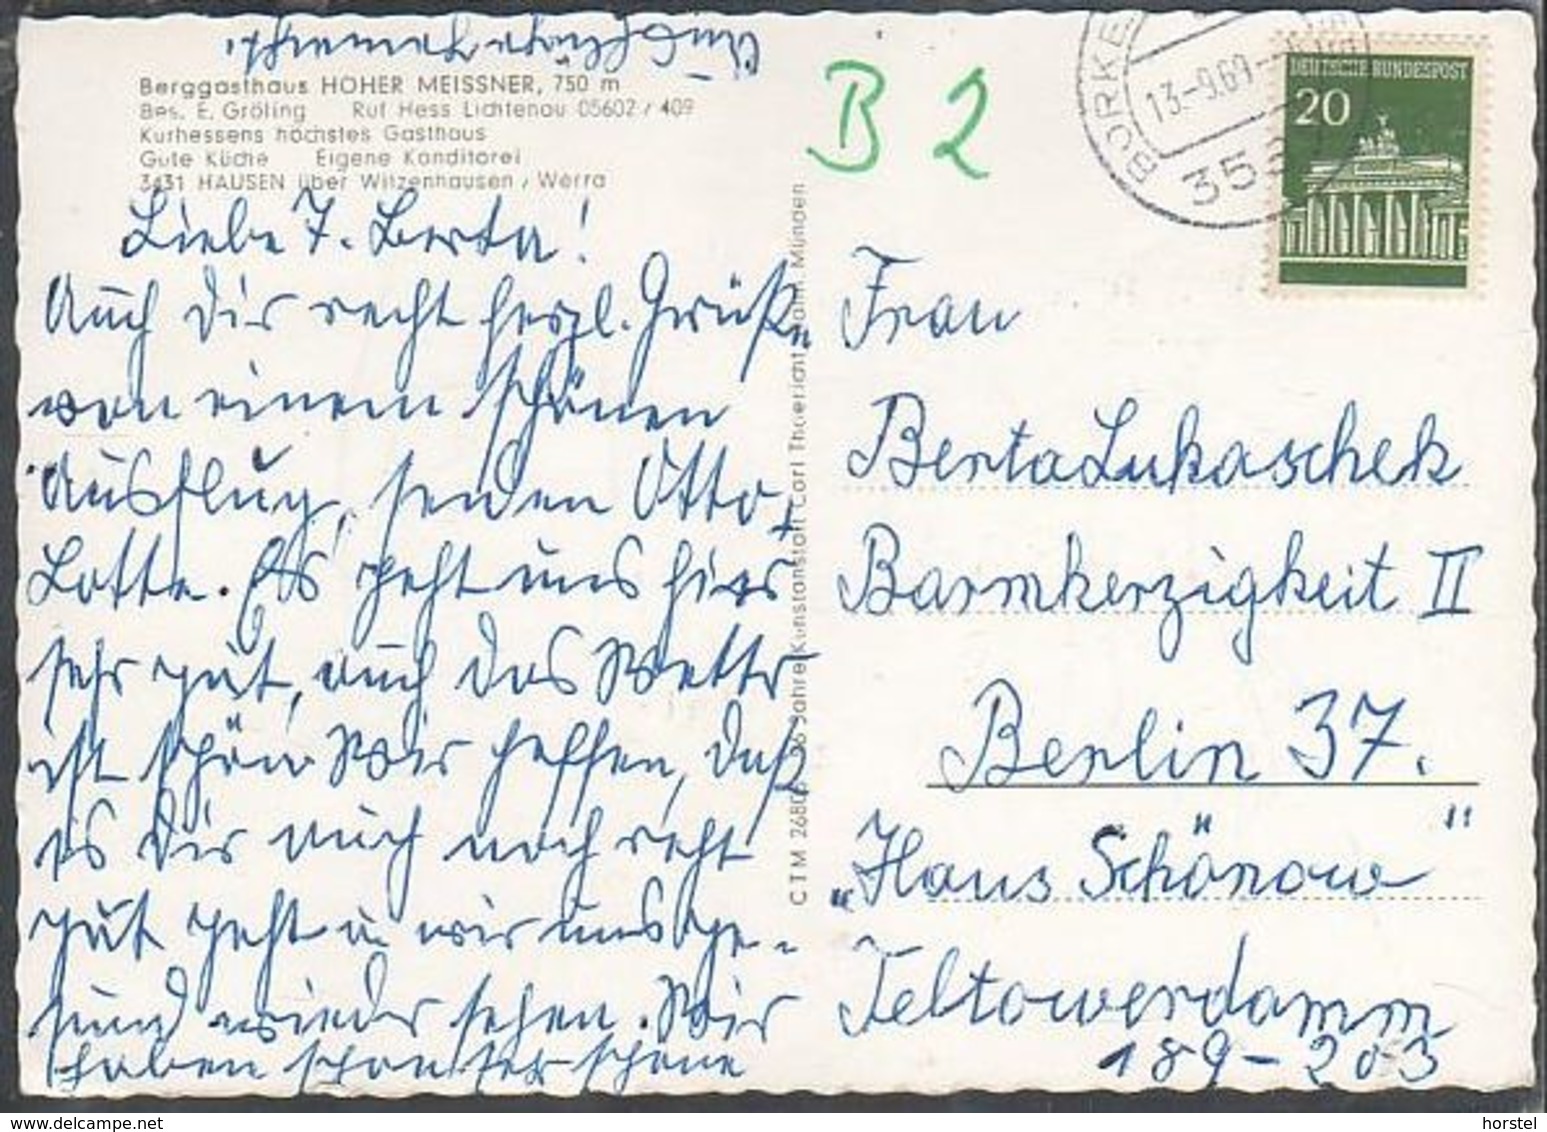 Ausflüge gemacht.
Berggasthaus HOHER MEISSNER, 750 m
Bes. E. Gröling Ruf Hess Lichtenau 05602 / 409
Kurhessens höchstes Gasthaus
Gute Küche Eigene Konditorei
3431 HAUSEN über Witzenhausen / Werra
Liebe T. Berta!
Auch Dir recht herzl. Grüße
von einem schönen
Ausflug, senden Otto +
Lotte. Es geht uns hier
sehr gut, auch das Wetter
ist schön. Wir hoffen, daß
es Dir auch noch recht
gut geht u. wir uns ge-
sund wieder sehen. Wir
haben schon sehr schöne
CTM 2680 Jahre Kunstanstalt Carl Thoericht Hann. Münden
B 2
BORKE
13.-9.69
353
DEUTSCHE BUNDESPOST
20
Frau
Berta Lukaschek
Barmherzigkeit II
Berlin 37.
„Haus Schönow"
Teltowerdamm
189-203
horstel
www.delcampe.net